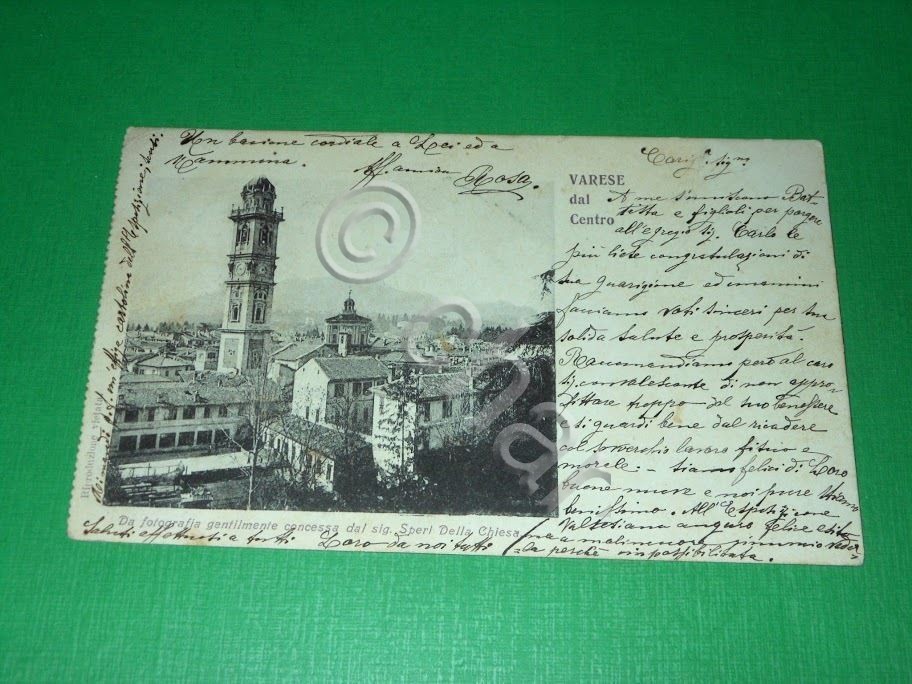 Un bacione cordiale a Loro ed a
Mammina.
Aff. amica Rosa.
VARESE
dal
Centro
A me s'uniscono Bat-
tista e figlioli per porgere
all'egregio Sig. Carlo le
più liete congratulazioni di
sua guarigione ed unanimi
facciamo voti sinceri per sua
solida salute e prosperità.
Raccomandiamo però al caro
Sig. convalescente di non appro-
fittare troppo del suo benessere
e si guardi bene dal ricadere
col soverchio lavoro fisico e
morale. – siamo felici di Loro
buone nuove e noi pure stiamo
benissimo. All'Esposizione
Valsesiana auguro felice esito
ma a malincuore rinuncio veder-
la perchè impossibilitata.
Riproduzione vietata
Da fotografia gentilmente concessa dal sig. Speri Della Chiesa
Saluti affettuosi a tutti Loro da noi tutti
cartoline dell'Esposizione
©